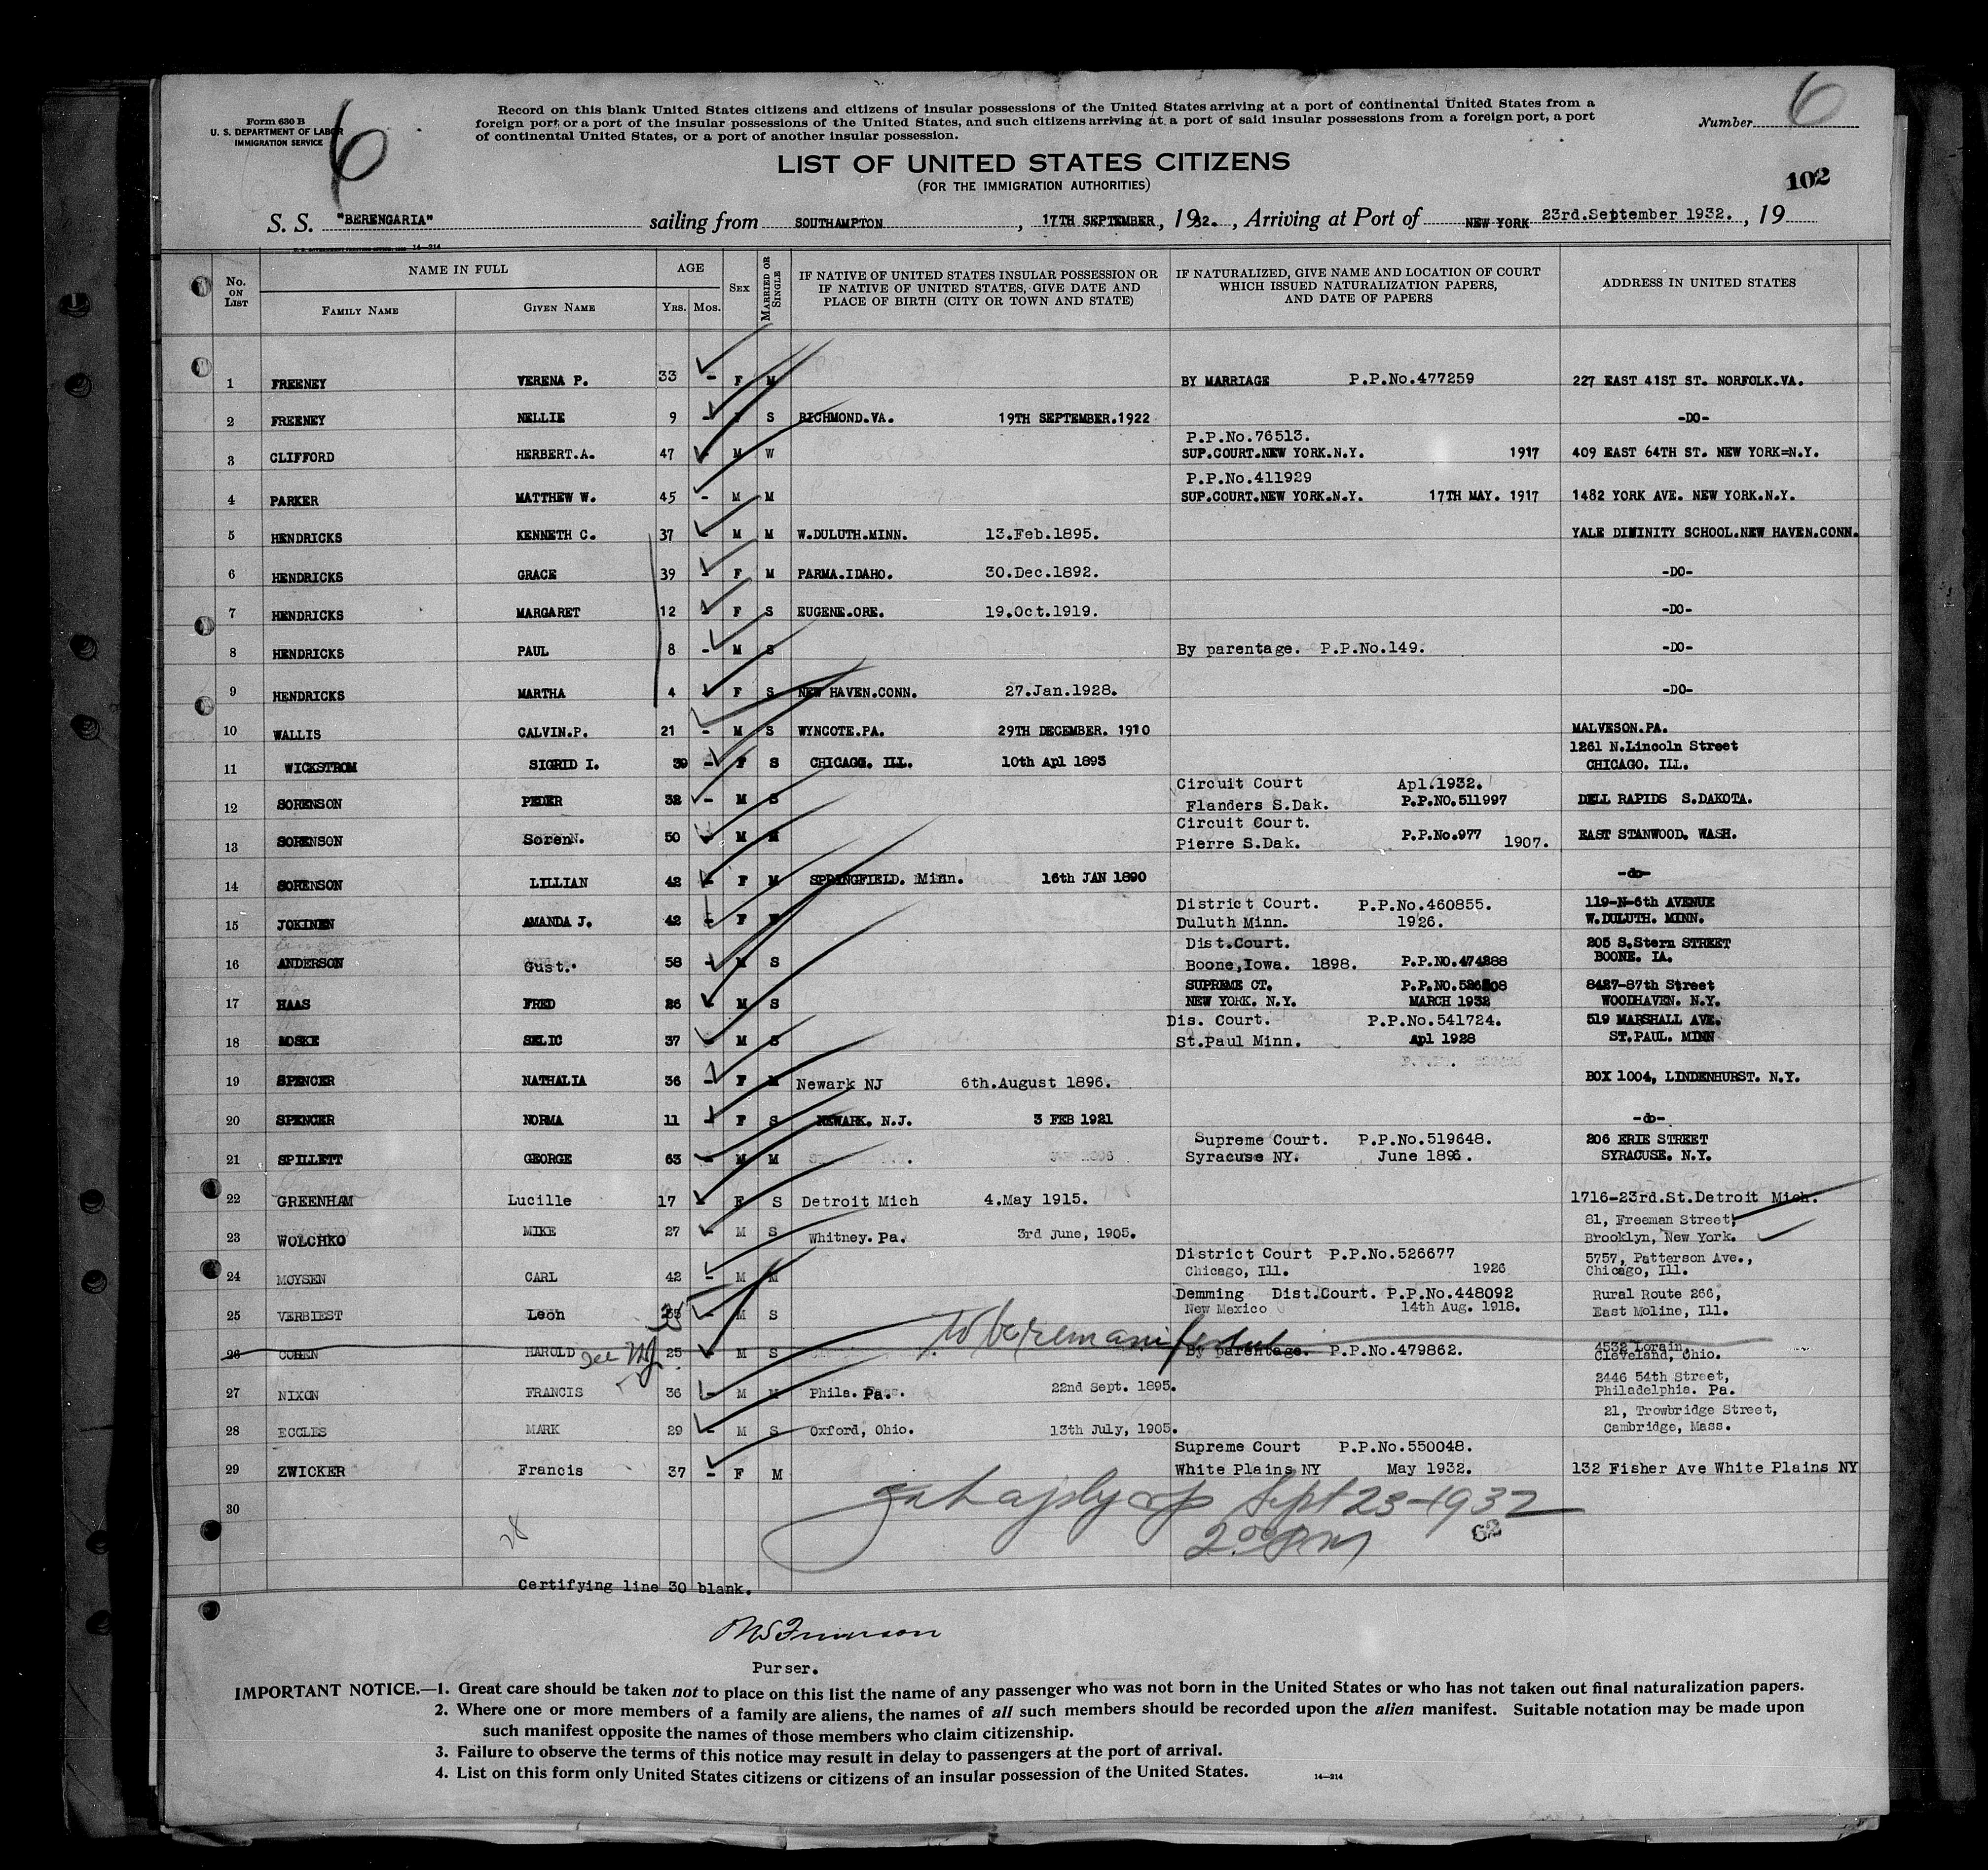 Form 630 B
U. S. DEPARTMENT OF LABOR
IMMIGRATION SERVICE
6
Record on this blank United States citizens and citizens of insular possessions of the United States arriving at a port of continental United States from a
foreign port or a port of the insular possessions of the United States, and such citizens arriving at a port of said insular possessions from a foreign port, a port
of continental United States, or a port of another insular possession.
Number 6
LIST OF UNITED STATES CITIZENS
(FOR THE IMMIGRATION AUTHORITIES)
102
S. S. "BERENGARIA" sailing from SOUTHAMPTON, 17TH SEPTEMBER, 1932., Arriving at Port of NEW YORK 23rd.September 1932., 19
14-214
No. ON LIST NAME IN FULL FAMILY NAME GIVEN NAME AGE YRS. MOS. SEX MARRIED OR SINGLE IF NATIVE OF UNITED STATES INSULAR POSSESSION OR IF NATIVE OF UNITED STATES, GIVE DATE AND PLACE OF BIRTH (CITY OR TOWN AND STATE) IF NATURALIZED, GIVE NAME AND LOCATION OF COURT WHICH ISSUED NATURALIZATION PAPERS, AND DATE OF PAPERS ADDRESS IN UNITED STATES
1 FREENEY VERENA P. 33 - F M BY MARRIAGE P.P.No.477259 227 EAST 41ST ST. NORFOLK.VA.
2 FREENEY NELLIE 9 - F S RICHMOND.VA. 19TH SEPTEMBER.1922 -DO-
P.P.No.76513.
3 CLIFFORD HERBERT.A. 47 - M W SUP.COURT.NEW YORK.N.Y. 1917 409 EAST 64TH ST. NEW YORK=N.Y.
P.P.No.411929
4 PARKER MATTHEW W. 45 - M M SUP.COURT.NEW YORK.N.Y. 17TH MAY. 1917 1482 YORK AVE. NEW YORK.N.Y.
5 HENDRICKS KENNETH C. 37 - M M W.DULUTH.MINN. 13.Feb.1895. YALE DIWINITY SCHOOL.NEW HAVEN.CONN.
6 HENDRICKS GRACE 39 - F M PARMA.IDAHO. 30.Dec.1892. -DO-
7 HENDRICKS MARGARET 12 - F S EUGENE.ORE. 19.Oct.1919. -DO-
8 HENDRICKS PAUL 8 - M S By parentage. P.P.No.149. -DO-
9 HENDRICKS MARTHA 4 - F S NEW HAVEN.CONN. 27.Jan.1928. -DO-
10 WALLIS CALVIN.P. 21 - M S WYNCOTE.PA. 29TH DECEMBER. 1910 MALVESON.PA.
1261 N.Lincoln Street
11 WICKSTROM SIGRID I. 39 - F S CHICAGO. ILL. 10th Apl 1893 CHICAGO. ILL.
Circuit Court Apl.1932.
12 SORENSON PEDER 32 - M S Flanders S.Dak. P.P.NO.511997 DELL RAPIDS S.DAKOTA.
Circuit Court.
13 SORENSON Soren N. 50 - M M Pierre S.Dak. P.P.No.977 1907. EAST STANWOOD, WASH.
14 SORENSON LILLIAN 42 - F M SPRINGFIELD. Minn. 16th JAN 1890 -do-
District Court. P.P.No.460855. 119-N-6th AVENUE
15 JOKINEN AMANDA J. 42 - F Duluth Minn. 1926. W.DULUTH. MINN.
Dist.Court. 205 S.Stern STREET
16 ANDERSON Gust. 58 - M S Boone,Iowa. 1898. P.P.NO.474288 BOONE. IA.
SUPREME CT. 8427-87th Street
17 HAAS FRED 26 - M S NEW YORK. N.Y. MARCH 1932 WOODHAVEN. N.Y.
Dis. Court. P.P.No.541724. 519 MARSHALL AVE.
18 MOSKE SELIC 37 - M S St.Paul Minn. Apl 1928 ST.PAUL. MINN
19 SPENCER NATHALIA 36 - F M Newark NJ 6th.August 1896. BOX 1004, LINDENHURST. N.Y.
20 SPENCER NORMA 11 - F S NEWARK. N.J. 3 FEB 1921 -do-
Supreme Court. P.P.No.519648. 206 ERIE STREET
21 SPILLETT GEORGE 63 - M M Syracuse NY. June 1896. SYRACUSE. N.Y.
22 GREENHAM Lucille 17 - F S Detroit Mich 4.May 1915. 1716-23rd.St.Detroit Mich.
81, Freeman Street,
23 WOLCHKO MIKE 27 - M S Whitney. Pa. 3rd June, 1905. Brooklyn, New York.
District Court P.P.No.526677 5757, Patterson Ave.,
24 MOYSEN CARL 42 - M M Chicago, Ill. 1926 Chicago, Ill.
Demming Dist.Court. P.P.No.448092 Rural Route 266,
25 VERBIEST Leon 35 - M S New Mexico 14th Aug. 1918. East Moline, Ill.
to be remanifested
4532 Lorain,
26 COHEN HAROLD See 25 - M S By parentage. P.P.No.479862. Cleveland, Ohio.
2446 54th Street,
27 NIXON FRANCIS 36 - M M Phila. Pa. 22nd Sept. 1895. Philadelphia. Pa.
21, Trowbridge Street,
28 ECCLES MARK 29 - M S Oxford, Ohio. 13th July, 1905. Cambridge, Mass.
Supreme Court P.P.No.550048.
29 ZWICKER Francis 37 - F M White Plains NY May 1932. 132 Fisher Ave White Plains NY
30
Sept 23-1932
2 00 PM
62
28
Certifying line 30 blank.
Purser.
IMPORTANT NOTICE.—1. Great care should be taken not to place on this list the name of any passenger who was not born in the United States or who has not taken out final naturalization papers.
2. Where one or more members of a family are aliens, the names of all such members should be recorded upon the alien manifest. Suitable notation may be made upon
such manifest opposite the names of those members who claim citizenship.
3. Failure to observe the terms of this notice may result in delay to passengers at the port of arrival.
4. List on this form only United States citizens or citizens of an insular possession of the United States.
14-214